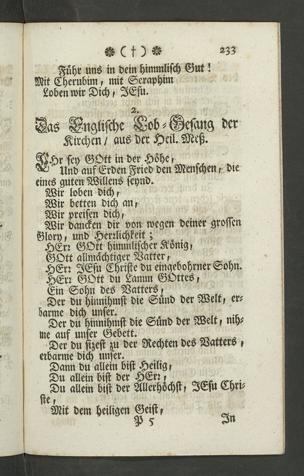 ❋ ( † ) ❋ 233
Führ uns in dein himmlisch Gut!
Mit Cherubim, mit Seraphim
Loben wir Dich, JEsu.
2.
Das Englische Lob-Gesang der
Kirchen/ aus der Heil. Meß.
EHr sey GOtt in der Höhe,
Und auf Erden Fried den Menschen, die
eines guten Willens seynd.
Wir loben dich,
Wir betten dich an,
Wir preisen dich,
Wir dancken dir von wegen deiner grossen
Glory, und Herrlichkeit;
HErr GOtt himmlischer König,
GOtt allmächtiger Vatter,
HErr JESu Christe du eingebohrner Sohn.
HErr GOtt du Lamm GOttes,
Ein Sohn des Vatters,
Der du hinnihmst die Sünd der Welt, er-
barme dich unser.
Der du hinnihmst die Sünd der Welt, nih-
me auf unser Gebett.
Der du sizest zu der Rechten des Vatters,
erbarme dich unser.
Dann du allein bist Heilig,
Du allein bist der HErr,
Du allein bist der Allerhöchst, JESu Chri-
ste,
Mit dem heiligen Geist,
P 5 In